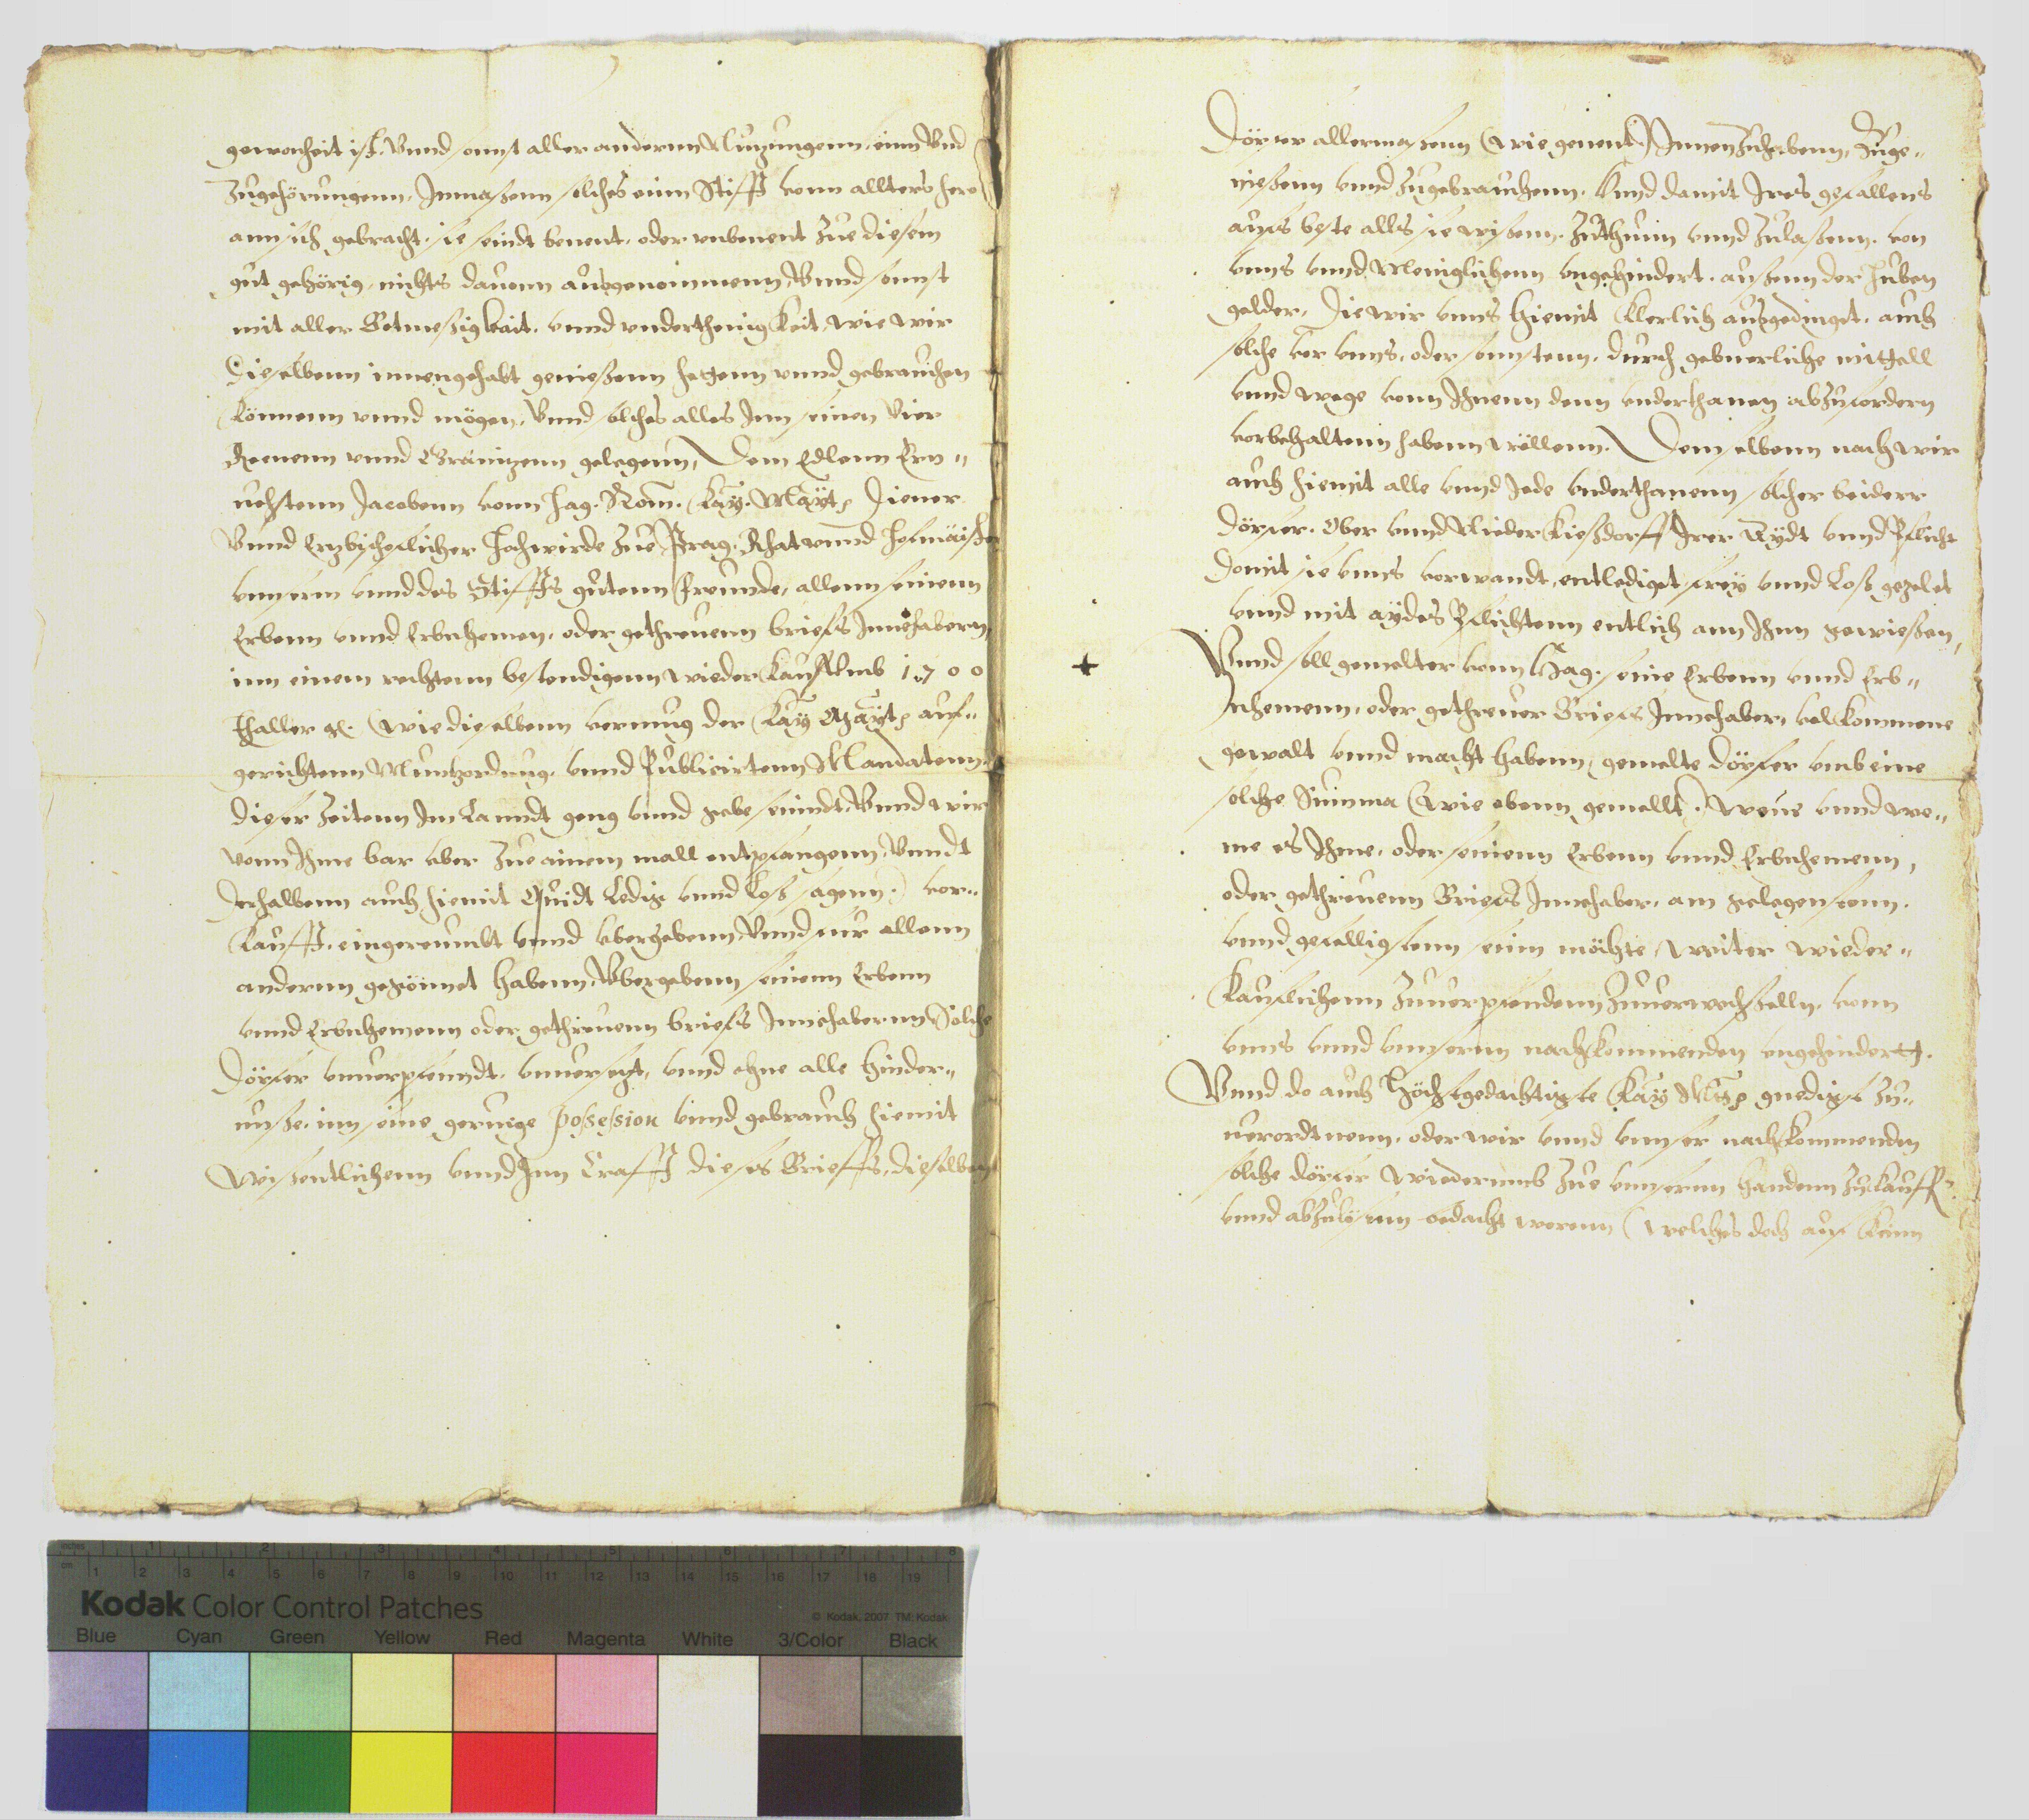 gewonheit ist, Vnnd sonst aller andernn Nutzungenn, einn Vnd
Zugehörungenn, Inmaßenn solches einn Stifft vonn allters hero
ann sich gebracht, sie seindt benent, oder vnbenent Zue diesem
gut gehörig, nichts dauonn ausgenommenn, Vnnd sonst
mit aller Botmeßigkeit, vnnd vnderthenigkeit, wie wir
Dieselbenn innengehabt genießenn hettenn vnnd gebrauchen
Könnenn vnnd mögen, Vnnd solches alles Inn seinen Vier
Reenenn vnnd Gränitzenn gelegenn, Dem Edlenn Ern"
uehstenn Jacobenn vonn Hag. Röm. Kay. Mayt. Diener
Vnnd Ertzbischoflicher Hochwirde Zue Prag, Rhat vnnd Hofmaister
vnserm vnnd des Stiffts gutenn Freunde, allenn seinenn
Erbenn vnnd Erbnhemen, oder gethreuenn briefs Innehabern,
inn einem rechtenn bestendigenn wieder Kauff vmb 1700
Thaller &c. (wie dieselbenn vermug der Kay Mayt. auf"
gerichtenn Muntzordnug, vnnd Publicirtenn Mandatenn,
dieser Zeitenn Im Landt geng vnnd gebe seindt, Vnnd wir
vonn Ihme bar vber Zue ainem mall entpfangenn, Vnndt
Derhalbenn auch hiemit Quidt Ledig vnnd Loß sagenn) vor"
Kaufft, eingereumbt vnnd vbergebenn, Vnnd fur allenn
andernn gegönnet habenn, Vbergebenn seinenn Erbenn
vnnd Erbnhemenn oder gethreuenn briefs Innehabernn, Solche
Dörfer vnuerpfenndt, vnuersetzt, vnnd ohne alle hinder"
nuße, inn seine geruige possession vnnd gebrauch hiemit
Wißentlichenn vnnd Inn Crafft dieses Brieffs, dieselben
Dörfer allermaßenn (wie genent) Innen Zuhabenn, Zuge"
nießenn vnnd Zugebrauchenn, Vnnd damit Ires gefallens
aufs beste alls sie wißenn, Zuthunn vnnd Zulaßenn, von
vnns vnnd Meniglichenn vngehindert, außenn der Huben
gelder, Die wir vnns hiemit Klerlich ausgedinget, auch
solche vor vnns, oder sonstenn, durch gebuerliche mittell
vnnd wege vonn Ihnenn denn vnderthanen abzufordern
vorbehaltenn habenn wöllenn. Demselbenn nach wir
auch hiemit alle vnnd Jede vnderthanenn solcher beiderr
Dörfer, Ober vnnd Nieder Kießdorff Irer Aydt vnnd Pflicht
Domit sie vnns vorwandt, entlediget, frey vnnd Loß gezelet
vnnd mit aydes Pflichtenn entlich ann Ihnn gewießen,
Vnnd soll gemelter vonn Hag, seine Erbenn vnnd Erb"
nhemenn, oder gethreuer Briefs Innehaber, volkommene
gewalt vnnd macht habenn, gemelte Dörfer vmb eine
solche Summa (wie obenn gemellt) wenn vnnd we"
me es Ihme, oder seinenn Erbenn vnnd Erbnhemenn,
oder gethreuenn Briefs Innehaber, am gelegenstenn,
vnnd gefelligstenn sein möchte, weiter wieder"
Kauflichenn Zuuerpfendenn Zuuerwechßelln, vonn
vnns vnnd vnnsernn nachkommenden vngehindertt.
Vnnd do auch Höchstgedachtigste Kay Mt. gnedigst Zu"
uerordtnenn, oder wir vnnd vnnser nachkommenden
solche dörfer wiederumb Zue vnnsernn handenn Zukauffen
vnnd abzulösenn bedacht werenn (welches doch auf Kein